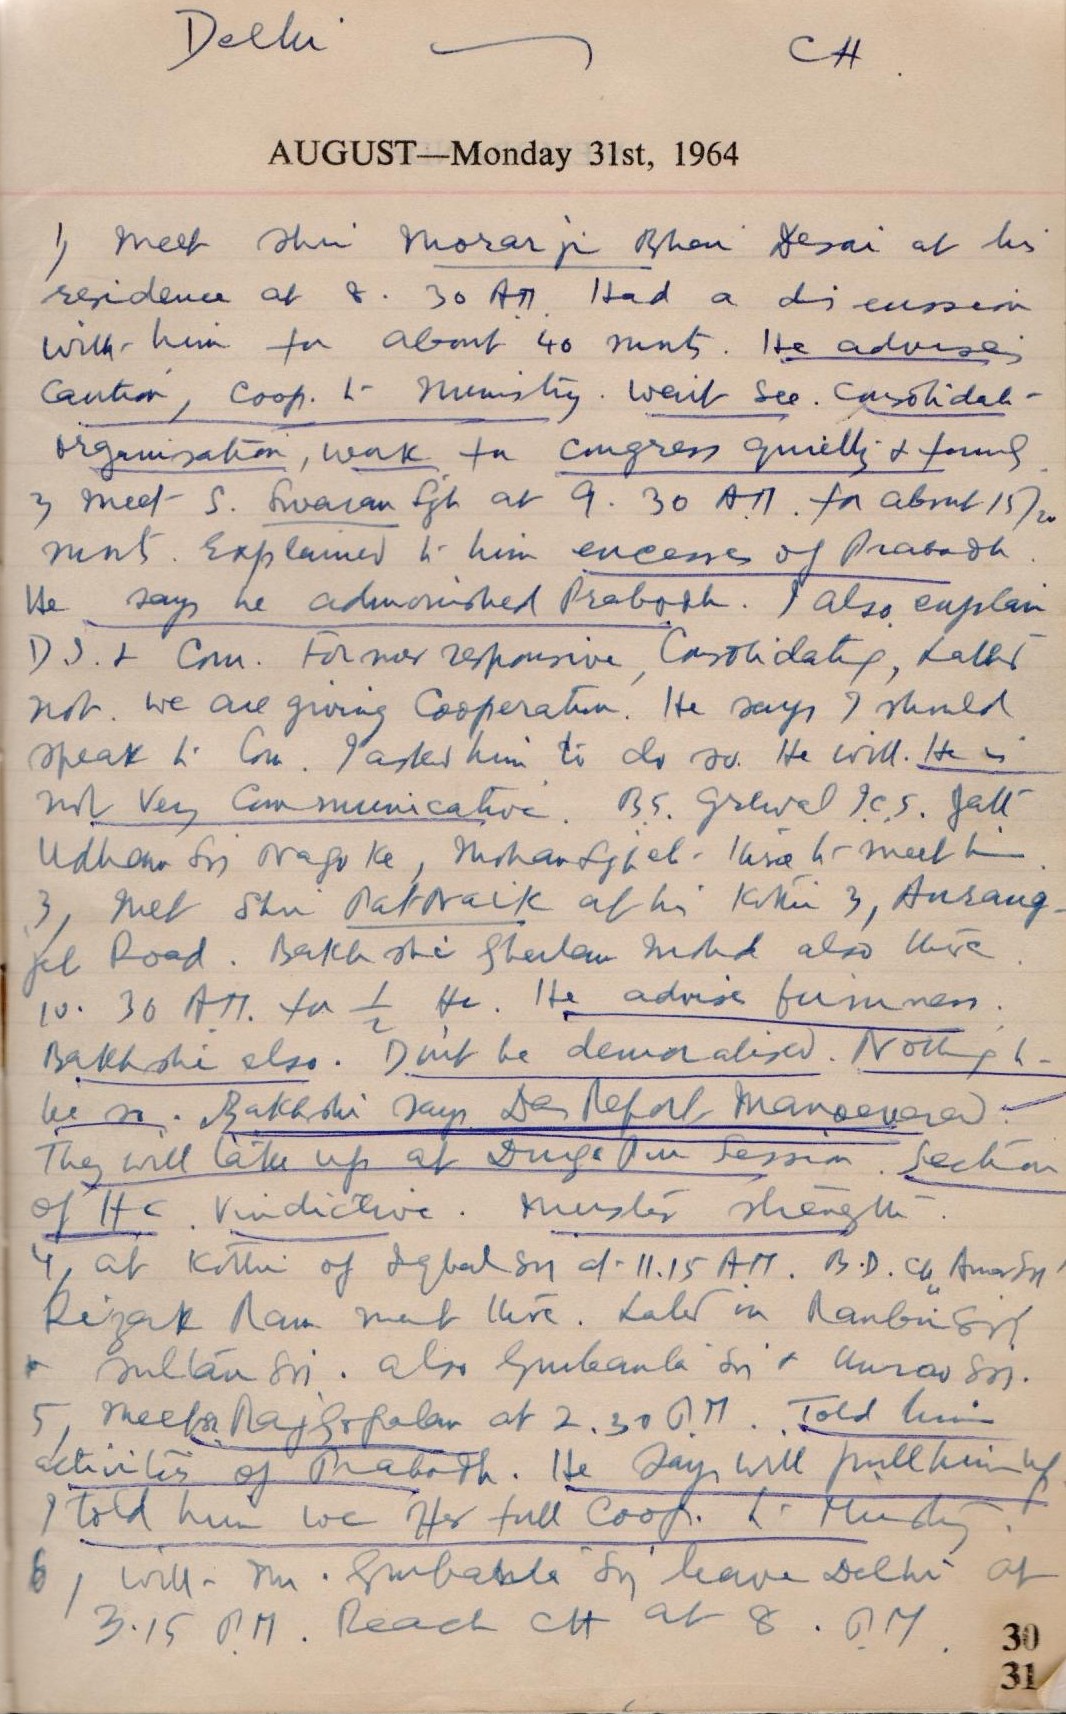 Delhi — CH
AUGUST—Monday 31st, 1964
1, Meet Shri Morarji Bhai Desai at his
residence at 8. 30 AM. Had a discussion
with him for about 40 mnts. He advises
Caution, Coop. to Ministry. Wait See. Consolidate
organisation, work for Congress quietly &
2, Meet S. Swaran Sgh at 9. 30 AM. for about 15/20
mnts. Explained to him excesses of Prabodh.
He says he admonished Prabodh. I also explain
D.S. & Com. Former responsive, Consolidating, Latter
not. We are giving Cooperation. He says I should
speak to Com. I asked him to do so. He will. He is
not Very Communicative. B.S. Grewal I.C.S.
Udham Sn Nagoke, Mohan Sgh etc. there to meet him.
3, Met Shri PatNaik at his Kothi 3, Aurang-
zeb Road. Bakhshi Ghulam Mohd also there.
10. 30 AM. for 1/2 Hr. He advise firmness.
Bakhshi also. Dont be demoralised. Nothing to
be so. Bakhshi says Das Report Manoevered.
They will take up at Durga Pur Session. Section
of HC Vindictive. Muster strength.
4, at Kothi of Iqbal Sn at 11.15 AM. B.D. Ch Amar Sn
Rizak Ram meet there. Later in Ranbir Sgh
& Sultan Sn. also Gurbanta Sn & Umrao Sn.
5, Meet Sh Rajgopalan at 2.30 PM. Told him
activities of Prabodh. He says will pull him up
I told him we Her full Coop. to Ministry.
6, With Gurbanta Sn leave Delhi at
3.15 PM. Reach CH at 8. PM.
30
31